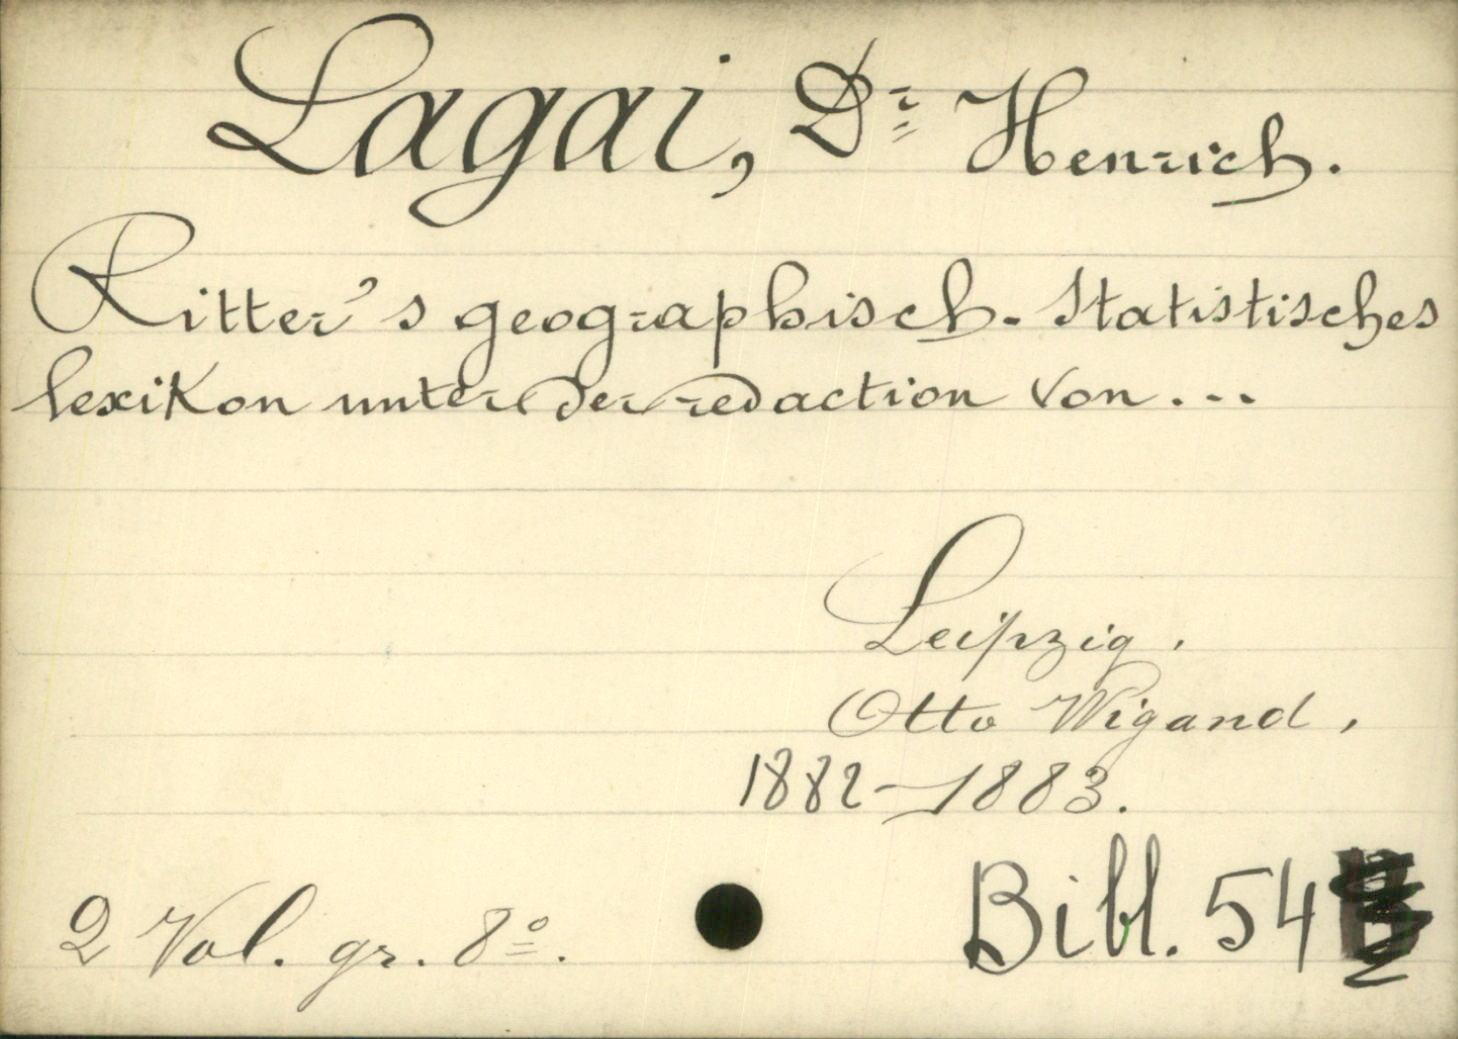 Lagai, Dr Henrich.
Ritter's geographisch-Statistisches
lexikon unter der redaction von...
Leipzig,
Otto Wigand,
1882-1883.
2 Vol. gr. 8º.
Bibl. 54